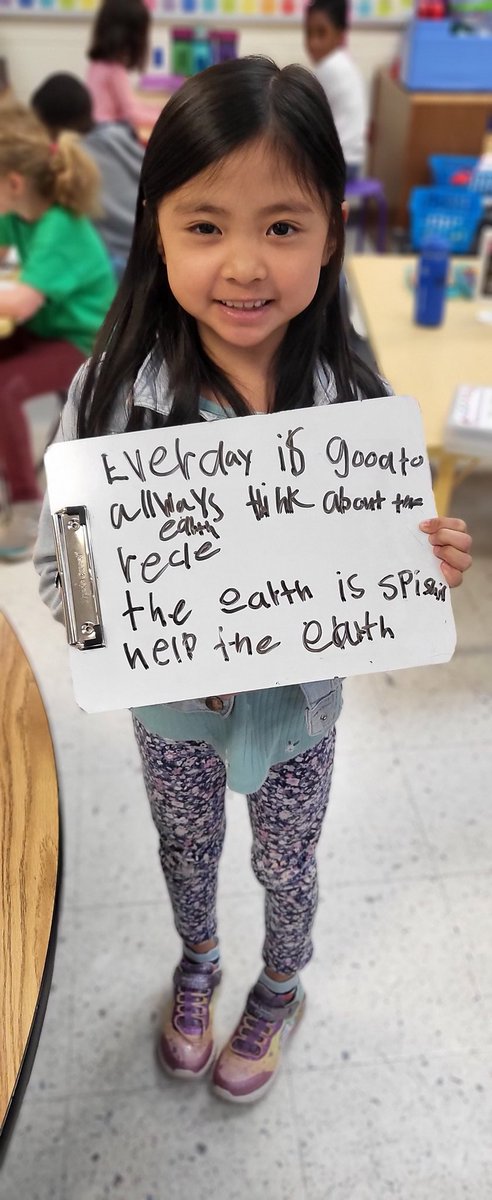 Everday is good to
allways think about the
earth
rede
the earth is spishil
help the earth